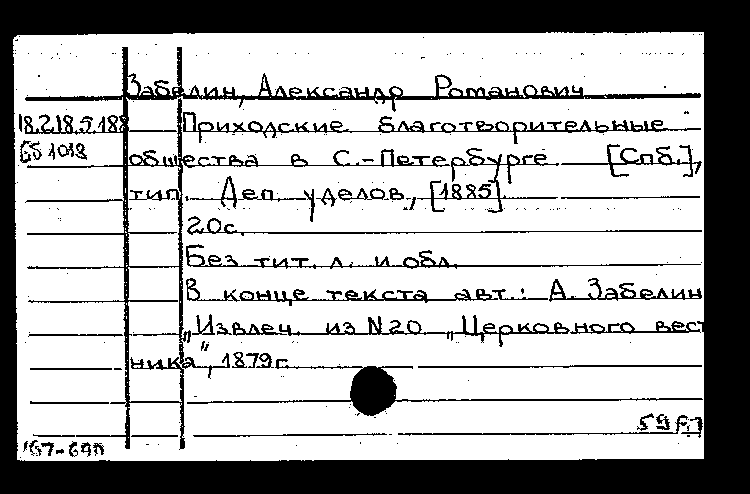 Забелин, Александр Романович
18.218.5.188 Приходские благотворительные
общества в С.-Петербурге [Спб.],
тип. Деп. уделов, [1885].
20с.
Без тит. л. и обл.
В конце текста авт.: А. Забелин
„Извлеч. из N20 „Церковного вест
ника", 1879г.